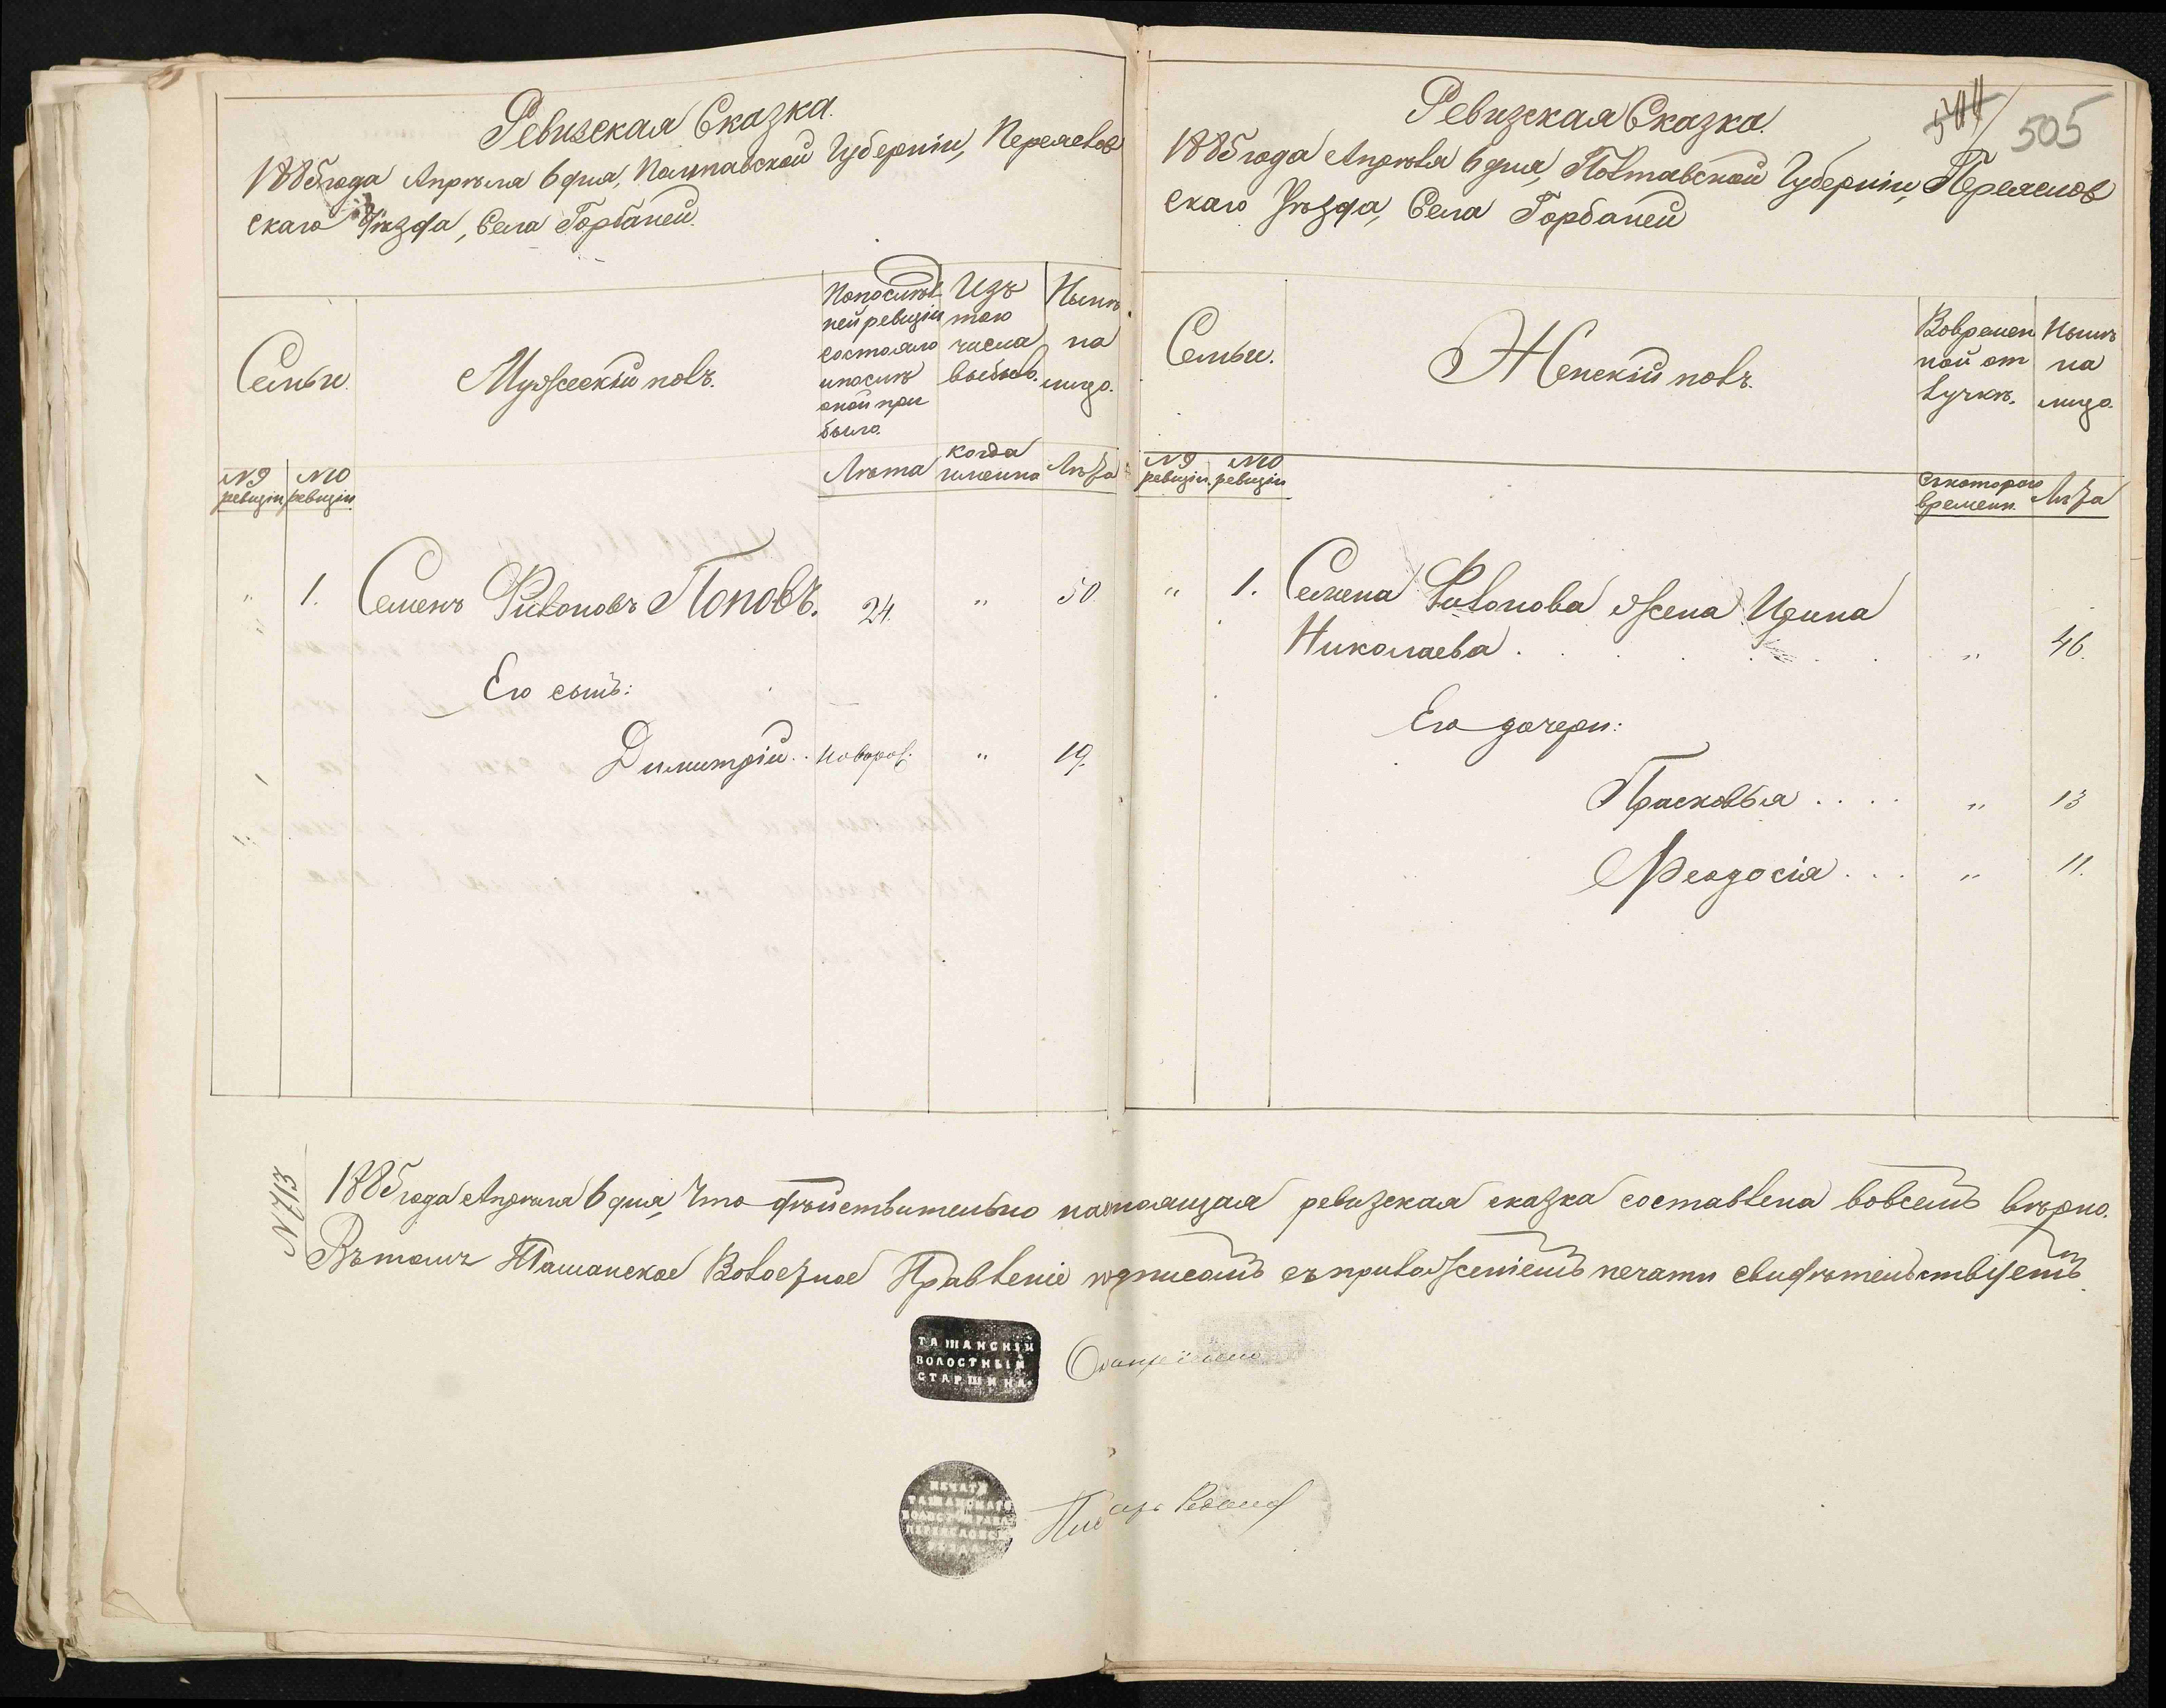 Ревизская Сказка.
1885 года Апрѣля 6 дня, Полтавской Губерніи, Переяслов
скаго Уѣзда, Села Горбаней.
Семьи.
Мужескій полъ.
Попослѣд
ней ревизіи
состояло
ипослѣ
оной при
было.
Изъ
того
числа
выбыло.
Нынѣ
на
лицо.
№ 9
ревизіи
№ 10
ревизіи.
Лѣта
когда
именно
Лѣта
" 1. Семенъ Филоновъ Поповъ. 24. " 50.
Его сынъ:
Димитрій . . новорож. " 19.
544
505
Ревизская Сказка.
1885 года Апрѣля 6 дня, Полтавской Губерніи, Переяслов
скаго Уѣзда, Села Горбаней
Семьи.
Женскій полъ.
Вовремен
ной от
лучкѣ.
Нынѣ
на
лицо.
№ 9
ревизіи.
№ 10
ревизіи
Съкотораго
времени.
Лѣта
" 1. Семена Филонова жена Ирина
Николаева . . . . . . " 46.
Его дочери:
Прасковья . . . . " 13
Феодосія . . . " 11.
№ 713
1885 года Апрѣля 6 дня, Что дѣйствительно настоящая ревизская сказка составлена вовсемъ вѣрно.
Вътомъ Ташанское Волостное Правленіе подписомъ съприложеніемъ печати свидѣтельствуетъ.
ТАШАНСКІЙ
ВОЛОСТНЫЙ
СТАРШИНА.
ПЕЧАТЬ
ТАШАНСКАГО
ВОЛОСТ. ПРАВЛ.
ПЕРЕЯСЛОВСК.
УѢЗДА
Писарь